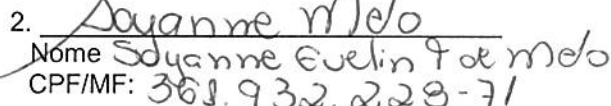 2. Soyanne Melo
Nome Soyanne Evelin F de Melo
CPF/MF: 368.932.228-71